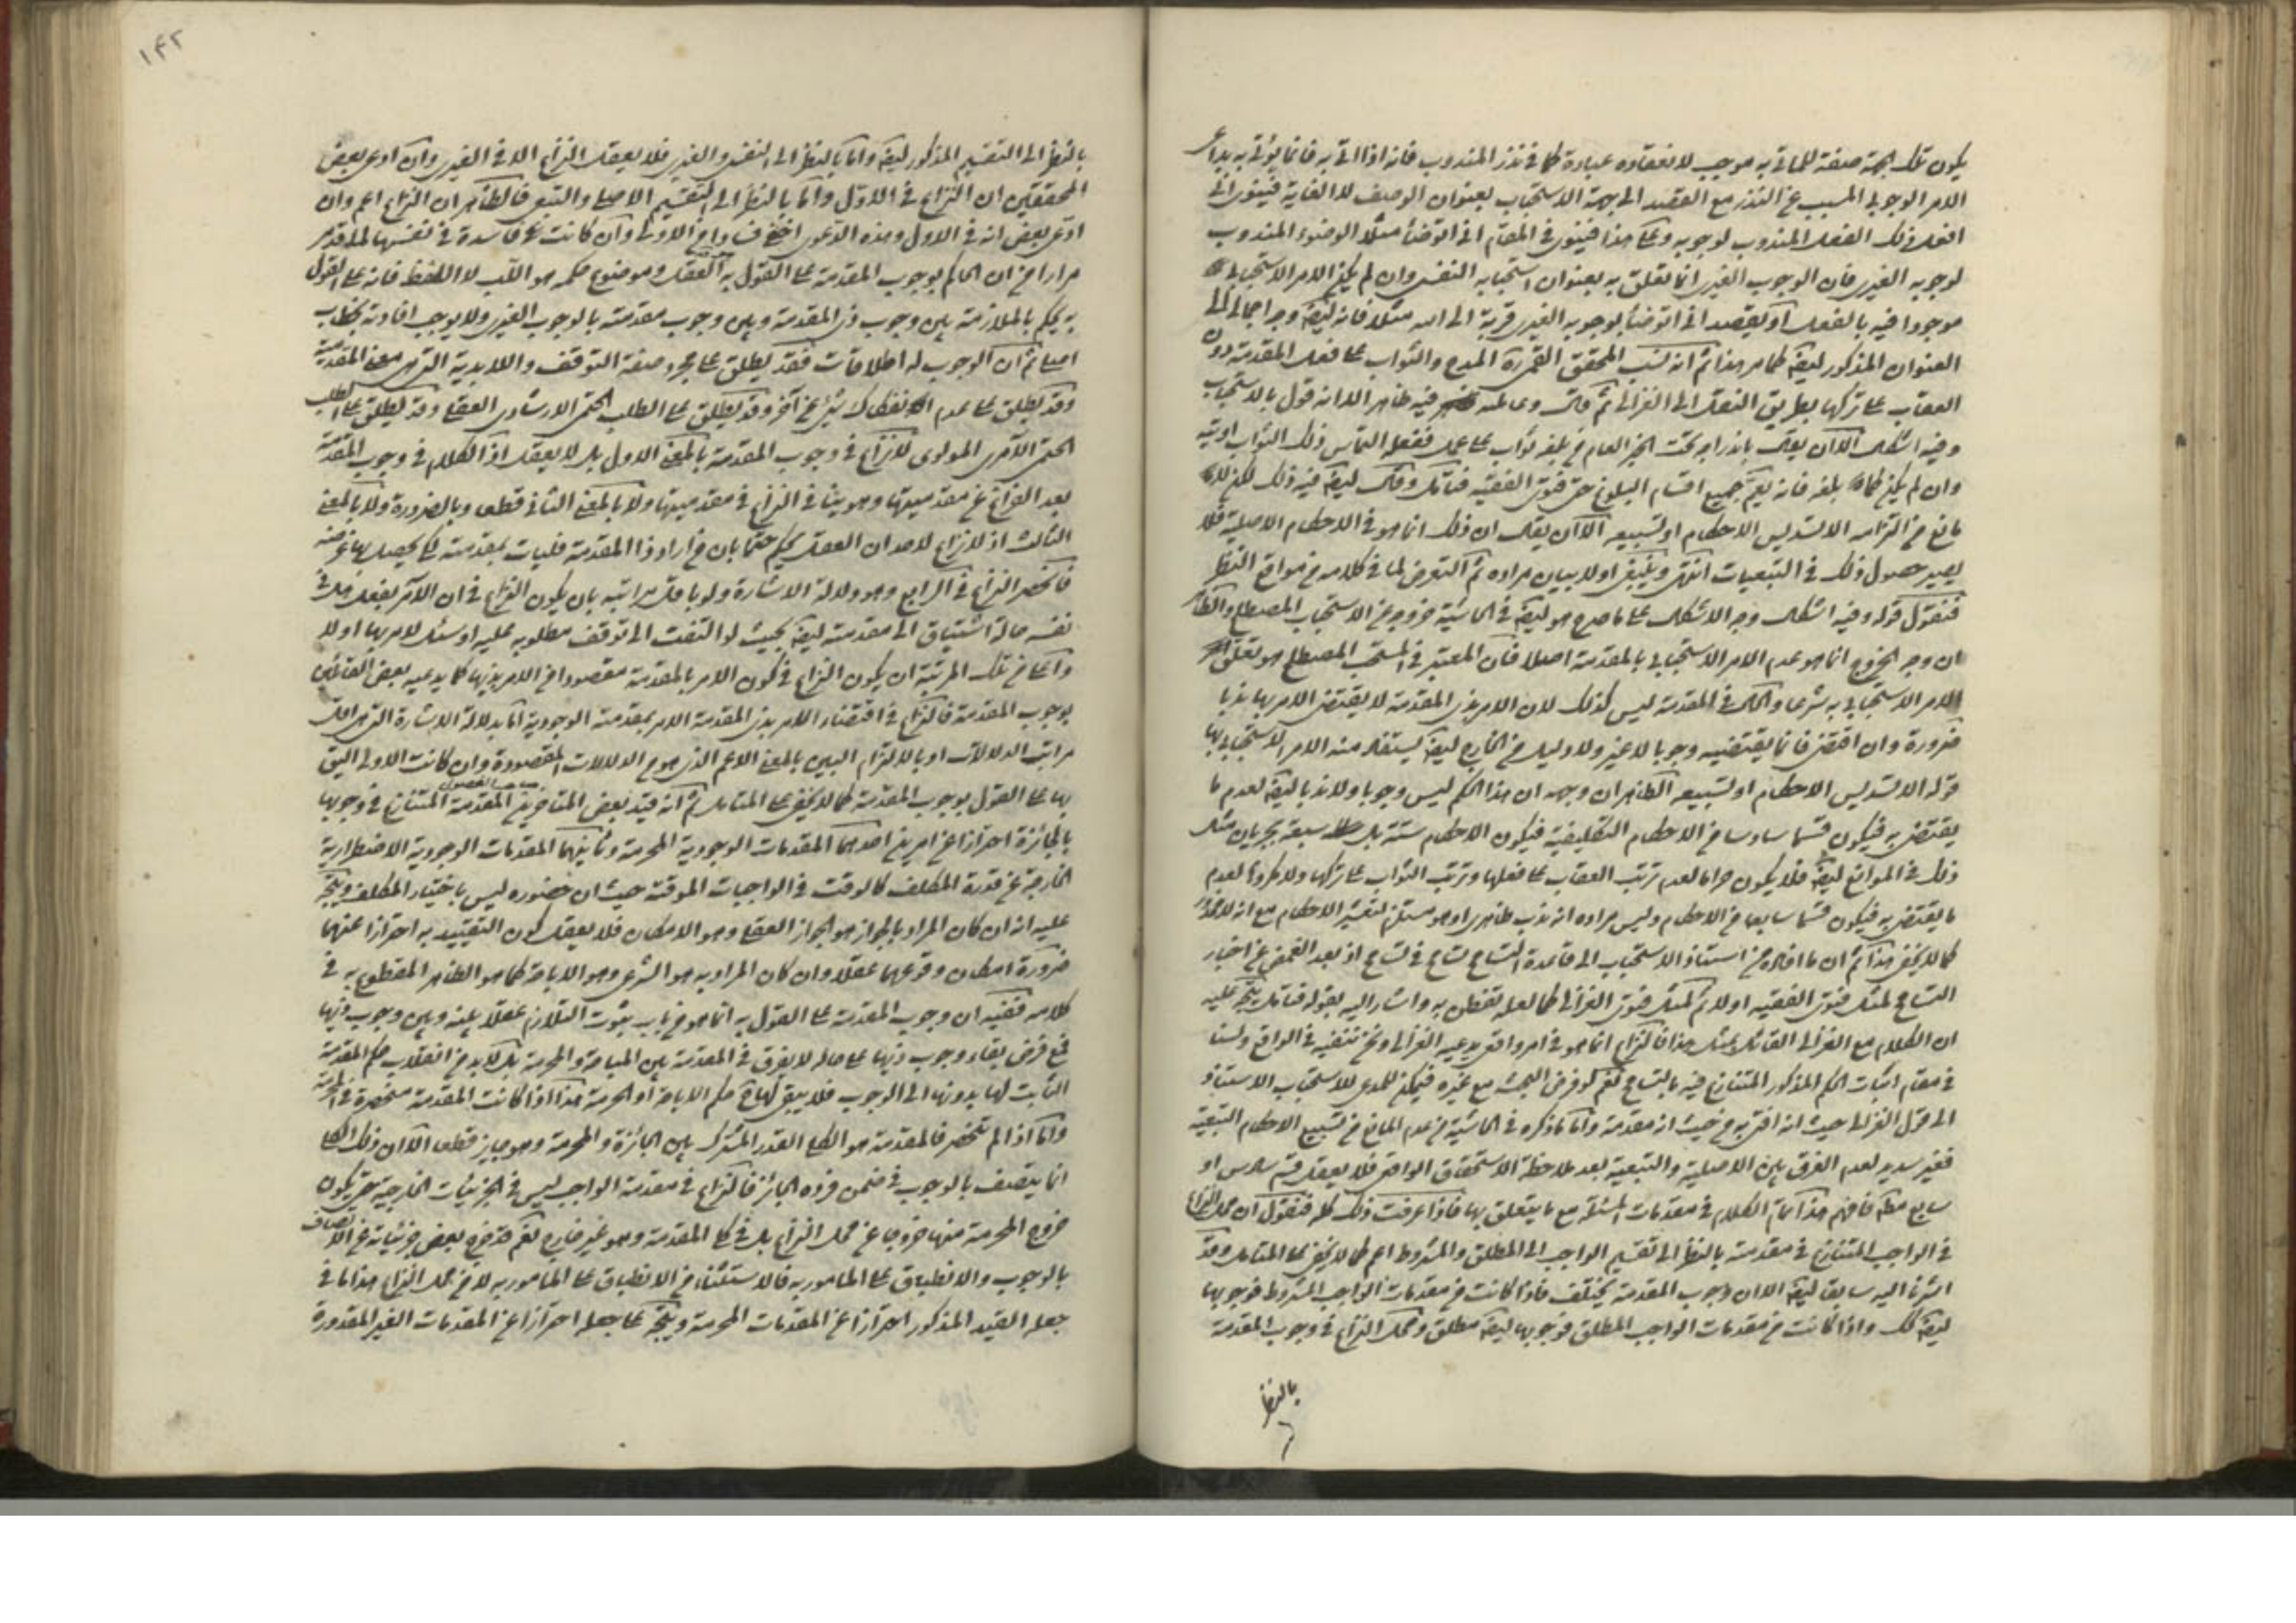 يكون تلك الجهة صفة للمأتي به موجب لانعقاده عبادة كما في نذر المندوب فانه اذا اتى به فانما يؤتى به بداعي
الامر الوجوبي المسبب عن النذر مع القصد الى جهة الاستحباب بعنوان الوصف لا الغاية فينوي اني
افعل ذلك الفعل المندوب لوجوبه وعلى هذا فينوي في المقام اني اتوضأ مثلا الوضوء المندوب
لوجوبه الغيري فان الوجوب الغيري انما تعلق به بعنوان استحبابه النفسي وان لم يكن الامر الاستحبابي
موجودا فيه بالفعل او يقصد اني اتوضأ لوجوبه الغيري قربة الى الله مثلا فانه ايضا وجه اجمالي الى
العنوان المذكور ايضا كما مر هذا ثم انه نسب المحقق القمي ره المدح والثواب على فعل المقدمة دون
العقاب على تركها بطريق النقل الى الغزالي ثم قال وعائلته فيه ظاهر الا انه قول بالاستحباب
وفيه اشكال الا ان يقال باندراجه تحت الخبر العام فيمن بلغه ثواب على عمل ففعله التماس ذلك الثواب اوتيه
وان لم يكن كما بلغه فانه يعم جميع اقسام البلوغ حتى فتوى الفقيه فتأمل وقال ايضا فيه ذلك لكن لا
مانع من التزامه الا تسديس الاحكام او تسبيعه الا ان يقال ان ذلك انما هو في الاحكام الاصلية فلا
يضير حصول ذلك في التبعيات انتهى وينبغي اولا بيان مراده ثم التعرض لما في كلامه من مواقع النظر
فنقول قوله وفيه اشكال وجه الاشكال على ما صرح هو ايضا في الحاشية خروجه عن الاستحباب المصطلح والظاهر
ان وجه الخروج انما هو عدم الامر الاستحبابي بالمقدمة اصلا فان المعتبر في المستحب المصطلح هو تعلق
الامر الاستحبابي به شرعا والحال في المقدمة ليس كذلك لان الامر بذي المقدمة لا يقتضي الامر بها ندبا
ضرورة وان اقتضى فانما يقتضيه وجوبا لا غير ولا دليل من الخارج ايضا يستفاد منه الامر الاستحبابي بها
قوله الا تسديس الاحكام او تسبيعه الظاهر ان وجهه ان هذا الحكم ليس وجوبا ولا ندبا ايضا لعدم ما
يقتضي به فيكون قسما سادسا من الاحكام التكليفية فيكون الاحكام ستة بل سبعة بجريان مثل
ذلك في الموانع ايضا فلا يكون حراما لعدم ترتب العقاب على فعلها وترتب الثواب على تركها ولا مكروها لعدم
ما يقتضي به فيكون قسما سابعا من الاحكام وليس مراده انه ندب ظاهري او هو مستلزم لتغيير الاحكام مع انه لا
كما لا يخفى هذا ثم ان ما افاده من استناد الاستحباب الى قاعدة التسامح تسامح في تسامح اذ بعد الغمض عن اخبار
التسامح لمثل فتوى الفقيه اولا ثم لمثل فتوى الغزالي كما لعله تفطن به واشار اليه بقوله فتأمل يتجه عليه
ان الكلام مع الغزالي القائل بمثل هذا فالنزاع انما هو في امر واقعي يدعيه الغزالي ونحن ننفيه في الواقع ولسنا
في مقام اثبات الحكم المذكور المتنازع فيه بالتسامح نعم لو فرض البحث مع غيره فيمكن للمدعي للاستحباب الاستناد
الى قول الغزالي حيث انه افتى به من حيث انه مقدمة واما ما ذكره في الحاشية من عدم المانع من تسبيع الاحكام التبعية
فغير سديد لعدم الفرق بين الاصلية والتبعية بعد ملاحظة الاستحقاق الواقعي فلا يعقل قسم سادس او
سابع مطلقا فافهم هذا تمام الكلام في مقدمات المسئلة مع ما يتعلق بها فاذا عرفت ذلك كله فنقول ان محل النزاع
في الواجب المتنازع في مقدمته بالنظر الى تقسيم الواجب الى المطلق والمشروط اعم كما لا يخفى على المتأمل وقد
اشرنا اليه سابقا ايضا الا ان وجوب المقدمة يختلف فاذا كانت من مقدمات الواجب المشروط فوجوبها
ايضا كك واذا كانت من مقدمات الواجب المطلق فوجوبها ايضا مطلق ومحل النزاع في وجوب المقدمة
بالنظر
١٤٢
بالنظر الى التقسيم المذكور ايضا واما بالنظر الى النفسي والغيري فلا يعقل النزاع الا في الغيري وان ادعى بعض
المحققين ان النزاع في الاول واما بالنظر الى التقسيم الاصلي والتبعي فالظاهر ان النزاع اعم وان
ادعى بعض انه في الاول وهذه الدعوى اوضح فسادا من الاولى وان كانت فاسدة في نفسها لما قد مر
مرارا من ان الحاكم بوجوب المقدمة على القول به العقل وموضوع حكمه هو اللب لا اللفظ فانه على القول
به يحكم بالملازمة بين وجوب ذي المقدمة وبين وجوب مقدمته بالوجوب الغيري ولا يوجب افادته بخطاب
اصلي ثم ان الوجوب له اطلاقات فقد يطلق على مجرد صفة التوقف واللابدية التي هي معنى المقدمية
وقد يطلق على عدم انفكاك شيء عن آخر وقد يطلق على الطلب الحتمي الارشادي العقلي وقد يطلق على الطلب
الحتمي الآمري المولوي لا نزاع في وجوب المقدمة بالمعنى الاول بل لا يعقل اذ الكلام في وجوب المقدمة
بعد الفراغ عن مقدميتها وهو ينافي النزاع في مقدميتها ولا بالمعنى الثاني قطعا وبالضرورة ولا بالمعنى
الثالث اذ لا نزاع لاحد ان العقل يحكم حتما بان من اراد ذا المقدمة فليات بمقدمته لكي يحصل بها غرضه
فانحصر النزاع في الرابع وهو دلالة الاشارة ولو باقل مراتبه بان يكون النزاع في ان الآمر بفعل هل في
نفسه حالة اشتياق الى مقدمته ايضا بحيث لو التفت الى توقف مطلوبه عليه او سئل لامر بها او لا
واعلى من تلك المرتبة ان يكون النزاع في كون الامر بالمقدمة مقصودا من الامر بذيها كما يدعيه بعض القائلين
بوجوب المقدمة فالنزاع في اقتضاء الامر بذي المقدمة الامر بمقدمته الوجودية اما بدلالة الاشارة التي هي اقل
مراتب الدلالات او بالالتزام البين بالمعنى الاعم الذي هو من الدلالات المقصودة وان كانت الاولى اليق
بها على القول بوجوب المقدمة كما لا يخفى على المتأمل ثم انه قيد بعض المتأخرين المقدمة المتنازع في وجوبها
صاحب الفصول
بالجائزة احترازا عن امرين احدهما المقدمات الوجودية المحرمة وثانيهما المقدمات الوجودية الاضطرارية
الخارجة عن قدرة المكلف كالوقت في الواجبات الموقتة حيث ان حضوره ليس باختيار المكلف ويتجه
عليه انه ان كان المراد بالجواز هو الجواز العقلي وهو الامكان فلا يعقل كون التقييد به احترازا عنهما
ضرورة امكان وقوعهما عقلا وان كان المراد به هو الشرعي وهو الاباحة كما هو الظاهر المقطوع به في
كلامه ففيه ان وجوب المقدمة على القول به انما هو من باب ثبوت التلازم عقلا بينه وبين وجوب ذيها
فمع فرض بقاء وجوب ذيها على حاله لا يفرق في المقدمة بين المباحة والمحرمة بل لا بد من انقلاب حكم المقدمة
الثابت لها بدونها الى الوجوب فلا يبقى لها ح حكم الاباحة او الحرمة هذا اذا كانت المقدمة منحصرة في المحرمة
واما اذا لم تنحصر فالمقدمة هو الكلي القدر المشترك بين الجائزة والمحرمة وهو جايز قطعا الا ان ذلك الكلي
انما يتصف بالوجوب في ضمن فرده الجائز فالنزاع في مقدمة الواجب ليس في الجزئيات الخارجية حتى يكون
خروج المحرمة منها خروجا عن محل النزاع بل في كلي المقدمة وهو غير خارج نعم قد خرج بعض جزئياته عن الاتصاف
بالوجوب والانطباق على المأمور به فالاستثناء من الانطباق على المأمور به لا من محل النزاع هذا ما في
جعله القيد المذكور احترازا عن المقدمات المحرمة ويتجه على جعله احترازا عن المقدمات الغير المقدورة